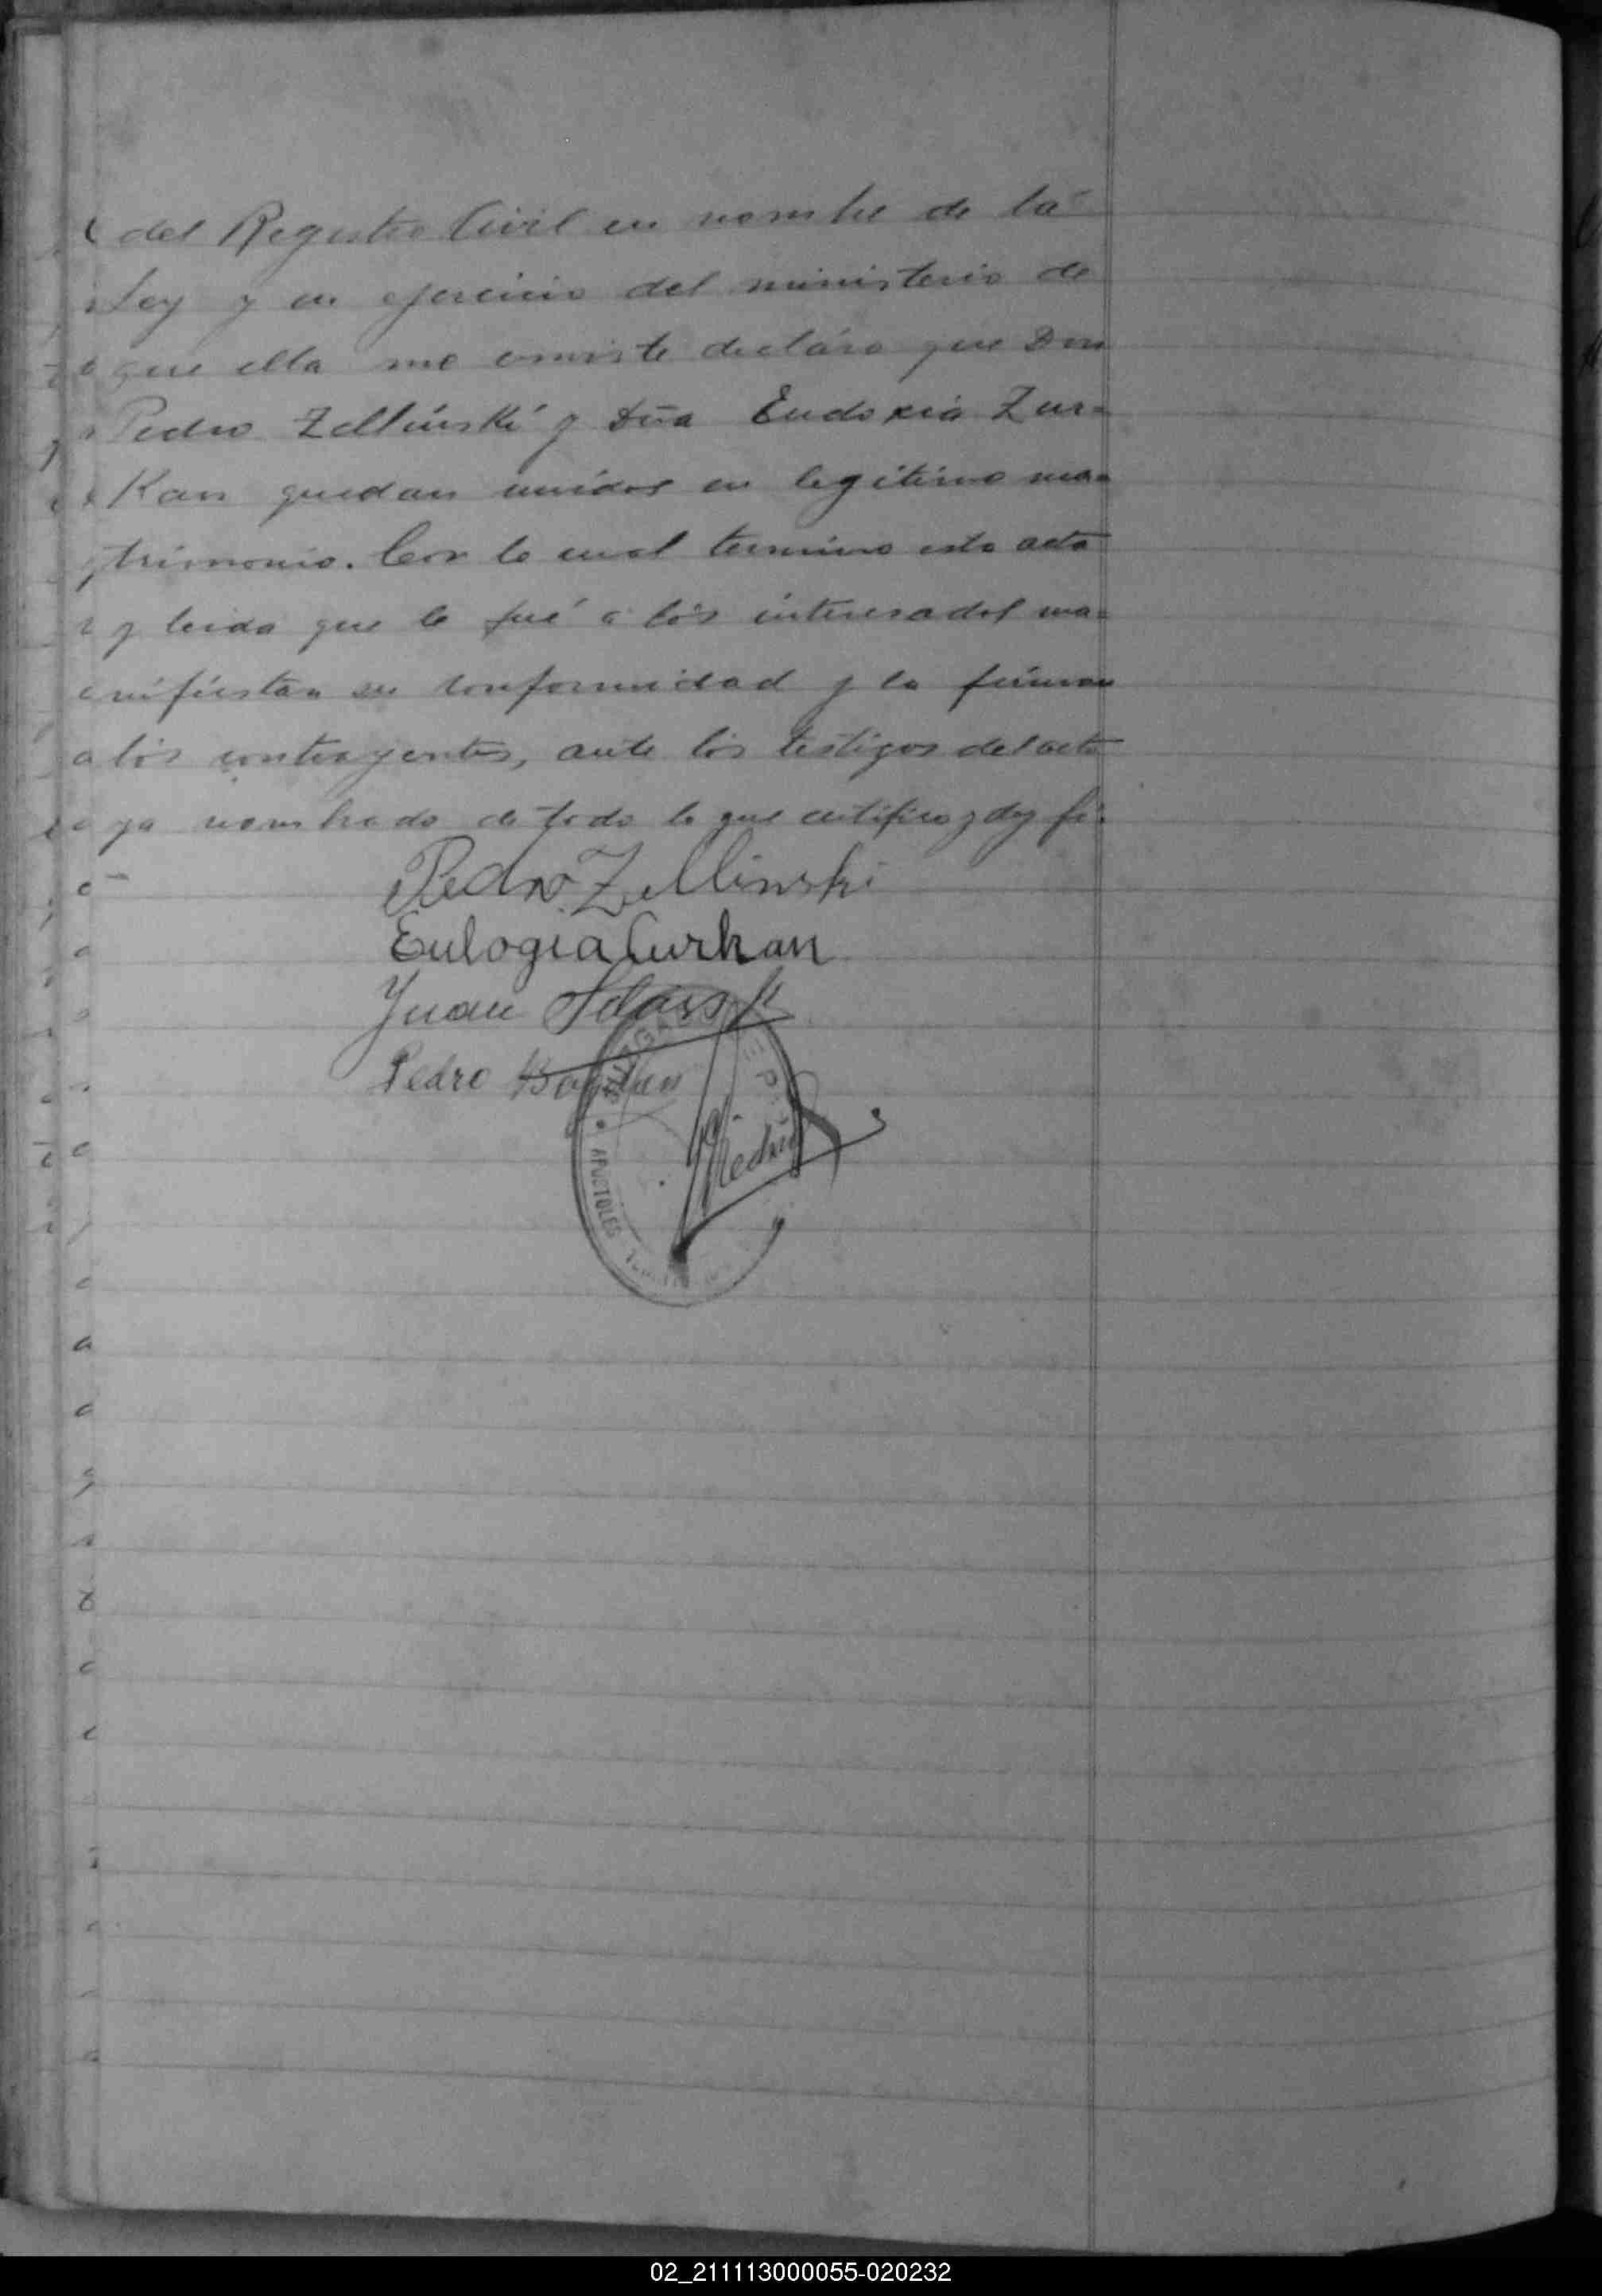 del Registro Civil en nombre de la
Ley y en ejercicio del ministerio de
que ella me enviste declaro que Don
Pedro Zellinski y Dña Eudoxia Zur=
Kan quedan unidos en legitimo ma=
trimonio. Con lo cual termino esta acta
y leida que le fué a los interesados ma=
nifiestan su conformidad y la firman
los contrayentes, ante los testigos del acto
ya nombrado de todo lo que certifico y doy fé.
Pedro Zellinski
Eulogia Curkan
Juan
Pedro Bogdan
APOSTOLES
02_211113000055-020232